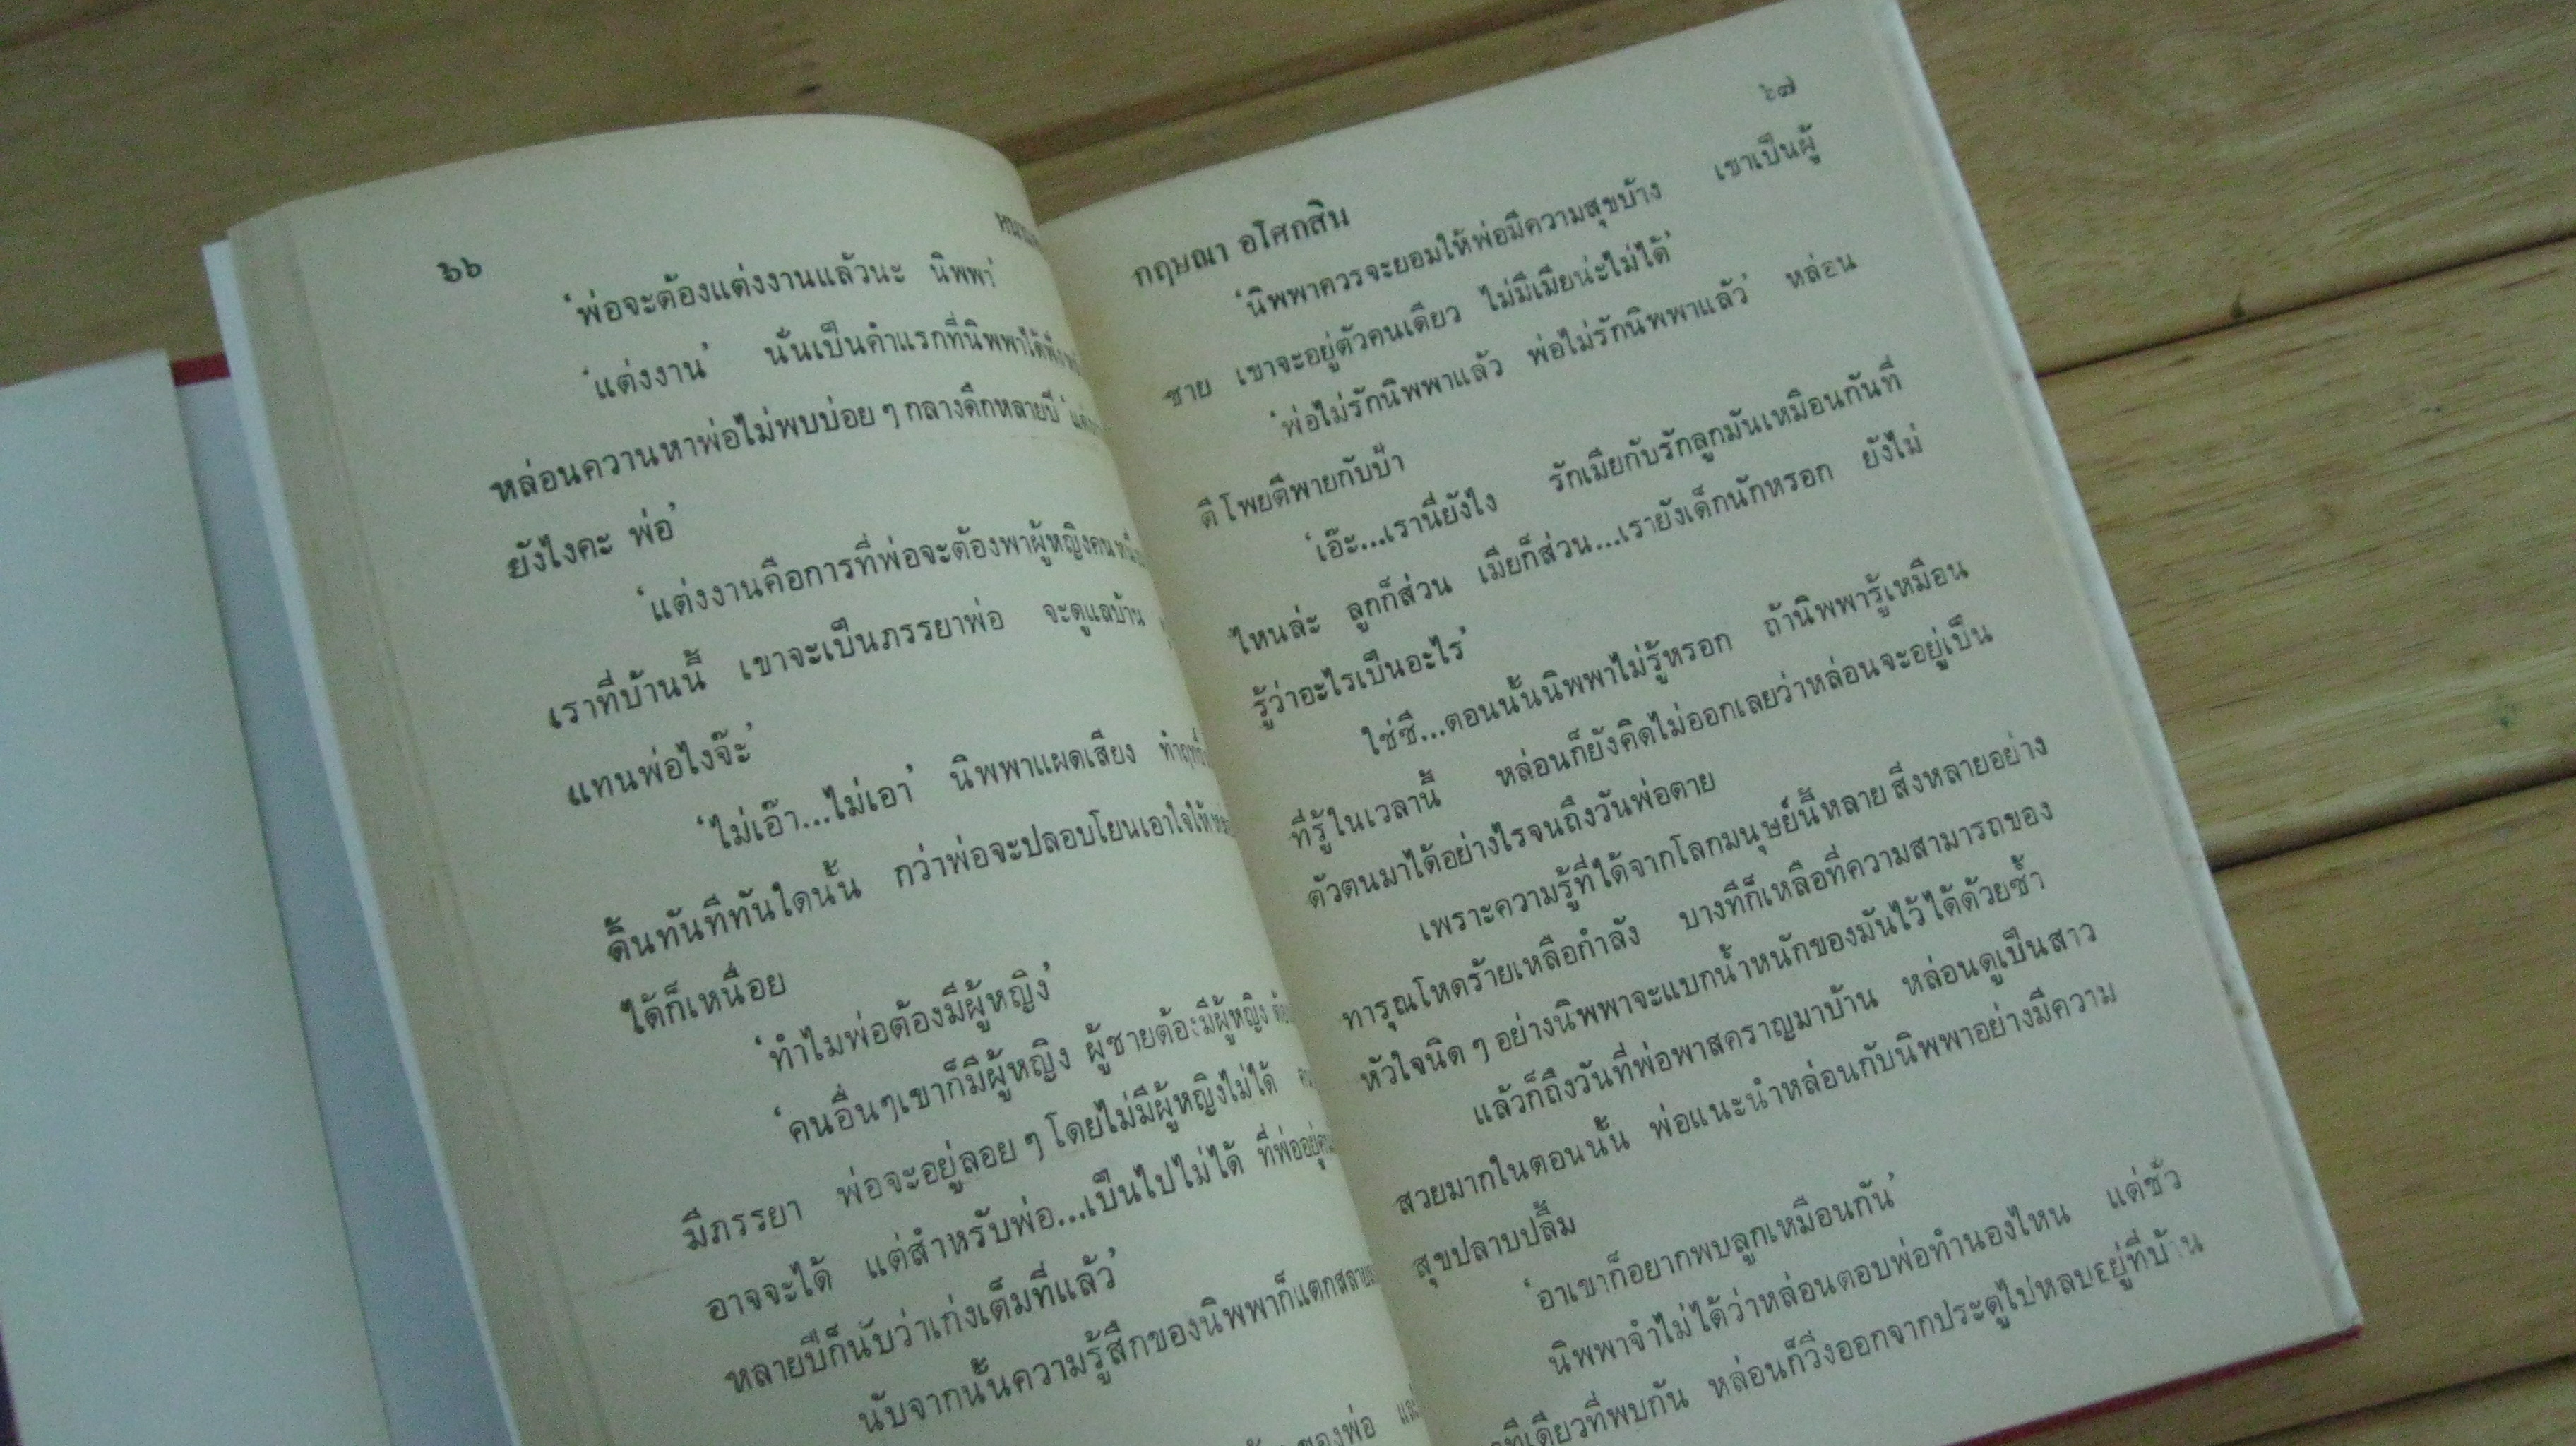 ๖๖
'พ่อจะต้องแต่งงานแล้วนะ นิพพา'
'แต่งงาน' นั่นเป็นคำแรกที่นิพพาได้ฟัง
หล่อนควานหาพ่อไม่พบบ่อย ๆ กลางดึกหลายปี
ยังไงคะ พ่อ'
'แต่งงานคือการที่พ่อจะต้องพาผู้หญิงคน
เราที่บ้านนี้ เขาจะเป็นภรรยาพ่อ จะดูแลบ้าน
แทนพ่อไงจ๊ะ'
'ไม่เอ๊า...ไม่เอา' นิพพาแผดเสียง
ดิ้นทันทีทันใดนั้น กว่าพ่อจะปลอบโยนเอาใจให้
ได้ก็เหนื่อย
'ทำไมพ่อต้องมีผู้หญิง'
'คนอื่นๆเขาก็มีผู้หญิง ผู้ชายต้องมีผู้หญิง
มีภรรยา พ่อจะอยู่ลอย ๆ โดยไม่มีผู้หญิงไม่ได้
อาจจะได้ แต่สำหรับพ่อ...เป็นไปไม่ได้ ที่พ่ออยู่
หลายปีก็นับว่าเก่งเต็มที่แล้ว'
นับจากนั้นความรู้สึกของนิพพาก็แตกสลาย
ของพ่อ
๖๗
กฤษณา อโศกสิน
'นิพพาควรจะยอมให้พ่อมีความสุขบ้าง เขาเป็นผู้
ชาย เขาจะอยู่ตัวคนเดียว ไม่มีเมียน่ะไม่ได้'
'พ่อไม่รักนิพพาแล้ว พ่อไม่รักนิพพาแล้ว' หล่อน
ตีโพยตีพายกับป้า
'เอ๊ะ...เรานี่ยังไง รักเมียกับรักลูกมันเหมือนกันที่
ไหนล่ะ ลูกก็ส่วน เมียก็ส่วน...เรายังเด็กนักหรอก ยังไม่
รู้ว่าอะไรเป็นอะไร'
ใช่ซี...ตอนนั้นนิพพาไม่รู้หรอก ถ้านิพพารู้เหมือน
ที่รู้ในเวลานี้ หล่อนก็ยังคิดไม่ออกเลยว่าหล่อนจะอยู่เป็น
ตัวตนมาได้อย่างไรจนถึงวันพ่อตาย
เพราะความรู้ที่ได้จากโลกมนุษย์นี้หลาย สิ่งหลายอย่าง
ทารุณโหดร้ายเหลือกำลัง บางทีก็เหลือที่ความสามารถของ
หัวใจนิด ๆ อย่างนิพพาจะแบกน้ำหนักของมันไว้ได้ด้วยซ้ำ
แล้วก็ถึงวันที่พ่อพาสคราญมาบ้าน หล่อนดูเป็นสาว
สวยมากในตอนนั้น พ่อแนะนำหล่อนกับนิพพาอย่างมีความ
สุขปลาบปลื้ม
'อาเขาก็อยากพบลูกเหมือนกัน'
นิพพาจำไม่ได้ว่าหล่อนตอบพ่อทำนองไหน แต่ชั่ว
ทีเดียวที่พบกัน หล่อนก็วิ่งออกจากประตูไปหลบอยู่ที่บ้าน